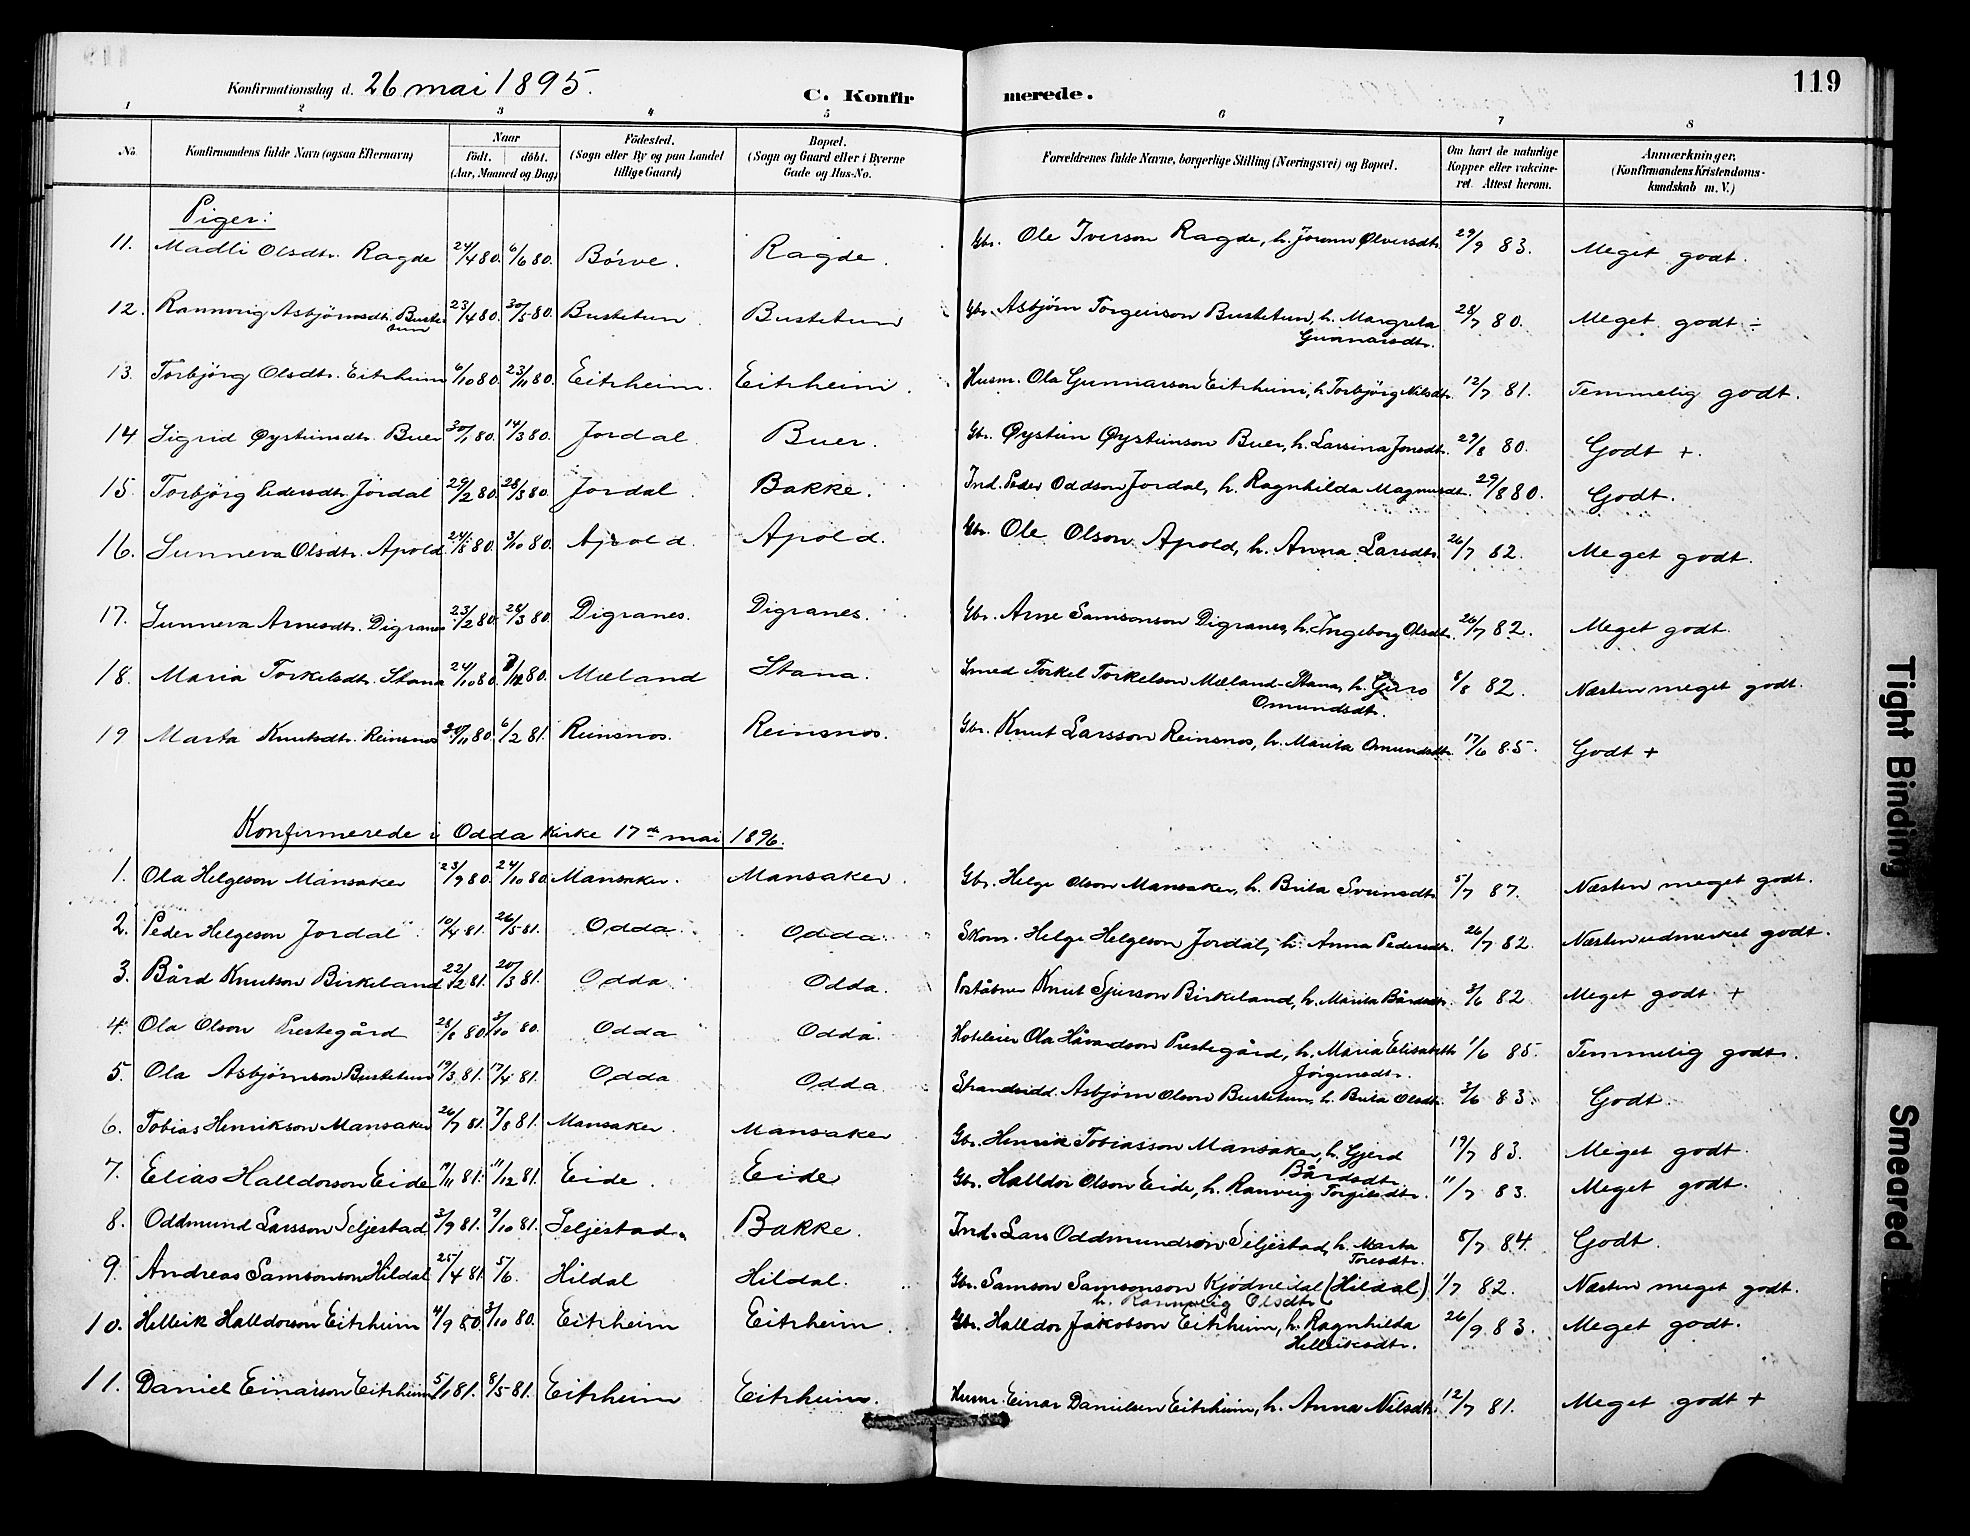 119
Konfirmationsdag d. 26 mai 1895.
C. Konfirmerede.
1 2 3 4 5 6 7 8
No. Konfirmandens fulde Navn (ogsaa Efternavn) Naar födt. döbt. (Aar, Maaned og Dag) Födested. (Sogn eller By og paa Landet tillige Gaard) Bopæl. (Sogn og Gaard eller i Byerne Gade og Hus-No. Forældrenes fulde Navne, borgerlige Stilling (Næringsvei) og Bopæl. Om havt de naturlige Kopper eller vakcineret. Attest herom. Anmærkninger. (Konfirmandens Kristendomskundskab m. V.)
Piger:
11. Madli Olsdtr. Ragde 24/4 80. 6/6 80. Börve. Ragde. Gbr. Ole Iverson Ragde, h. Joronn Ølversdtr. 29/9 83. Meget godt.
12. Rannveig Asbjörnsdtr. Bustetun 23/4 80. 30/5 80. Bustetun Bustetun Gbr. Asbjörn Torgeirson Bustetun, h. Margreta Gunnarsdtr. 28/7 80. Meget godt ÷
13. Torbjörg Olsdtr. Eitrheim 6/10 80. 23/11 80. Eitrheim. Eitrheim. Husm. Ola Gunnarson Eitrheim, h. Torbjörg Nilsdtr. 12/7 81. Temmelig godt.
14 Sigrid Øysteinsdtr. Buer 30/1 80. 14/3 80. Jordal. Buer. Gbr. Øystein Øysteinson Buer, h. Larsina Jonsdtr. 29/8 80. Godt +.
15. Torbjörg Pedersdtr. Jordal 29/2 80. 28/3 80. Jordal. Bakke. Ind. Peder Oddson Jordal, h. Ragnhilda Magnusdtr. 29/8 80. Godt.
16. Sunneva Olsdtr. Apold 24/8 80. 3/10 80. Apold. Apold. Gbr. Ole Olson Apold, h. Anna Larsdtr. 26/7 82. Meget godt.
17. Sunneva Arnesdtr. Digranes 23/2 80. 28/3 80. Digranes. Digranes. Gbr. Arne Samsonson Digranes, h. Ingeborg Olsdtr. 26/7 82. Meget godt.
18. Maria Torkelsdtr. Stana 24/10 80. 7/12 80. Mæland Stana. Smed Torkel Torkelson Mæland-Stana, h. Guro Omundsdtr. 8/8 82. Næsten meget godt.
19 Marta Knutsdtr. Reinsnos 24/11 80. 6/2 81. Reinsnos. Reinsnos. Gbr. Knut Larsson Reinsnos, h. Marita Omundsdtr. 17/6 85. Godt +
Konfirmerede i Odda Kirke 17de mai 1896.
1. Ola Helgeson Mansaker 23/9 80. 24/10 80. Mansaker. Mansaker. Gbr. Helge Olson Mansaker, h. Brita Sveinsdtr. 5/7 87. Næsten meget godt.
2. Peder Helgeson Jordal 10/4 81. 26/5 81. Odda. Odda. Skom. Helge Helgeson Jordal, h. Anna Pedersdtr. 26/7 82. Næsten udmerket godt.
3. Bård Knutson Birkeland 22/2 81. 20/3 81. Odda Odda. Poståbner Knut Sjurson Birkeland, h. Marita Bårdsdtr. 3/6 82 Meget godt +
4. Ola Olson Prestegård 28/8 80. 3/10 80. Odda Odda. Hoteleier Ola Håvardson Prestegård, h. Maria Elisabeth Jörgensdtr. 1/6 85. Temmelig godt.
5. Ola Asbjörnson Bustetun 19/3 81. 17/4 81. Odda Odda. Strandsidd. Asbjörn Olson Bustetun, h. Brita Olsdtr. 3/6 83. Godt.
6. Tobias Henrikson Mansaker 26/7 81. 7/8 81. Mansaker. Mansaker Gbr. Henrik Tobiasson Mansåker, h. Gjerd Bårdsdtr. 19/7 83. Meget godt.
7. Elias Halldorson Eide 19/11 81. 11/12 81. Eide. Eide Gbr. Halldor Olson Eide, h. Ranveig Torgilsdtr. 11/7 83. Meget godt.
8. Oddmund Larsson Seljestad 3/9 81. 9/10 81. Seljestad. Bakke. Ind. Lars Oddmundson Seljestad, h. Marta Toresdtr. 5/7 84. Godt.
9. Andreas Samsonson Hildal 25/4 81. 5/6. Hildal Hildal. Gbr. Samson Samsonson Kjödneidal (Hildal) h. Rannveig Olsdtr. 1/7 82. Næsten meget godt.
10. Helleik Halldorson Eitrheim 4/9 80. 3/10 80. Eitrheim Eitrheim. Gbr. Halldor Jakobson Eitrheim, h. Ragnhilda Helleiksdtr. 26/9 83. Meget godt.
11. Daniel Einarson Eitrheim 5/1 81. 8/5 81. Eitrheim Eitrheim. Husm. Einar Danielsen Eitrheim, h. Anna Nilsdtr. 12/7 81. Meget godt +
Tight Binding
Smeared